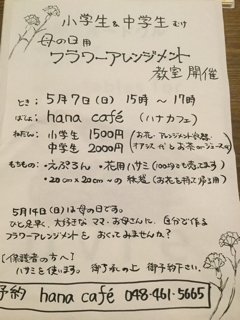 小学生&中学生むけ
母の日用
フラワーアレンジメント
教室 開催
とき： 5月7日(日) 15時 〜 17時
ばしょ： hana café (ハナカフェ)
ねだん： 小学生 1500円
中学生 2000円
もちもの： ・えぷろん ・花用ハサミ (100均でも売ってます)
・20cm×20cm〜の 紙袋 (お花を持って帰る用)
5月14日(日)は母の日です。
ひと足早く、大好きな ママ・お母さんに、自分で作る
フラワーアレンジメントを おくってみませんか？
〔保護者の方へ〕
ハサミを使います。 御了承の上 御予約下さい。
予約 hana café 048-461-5665